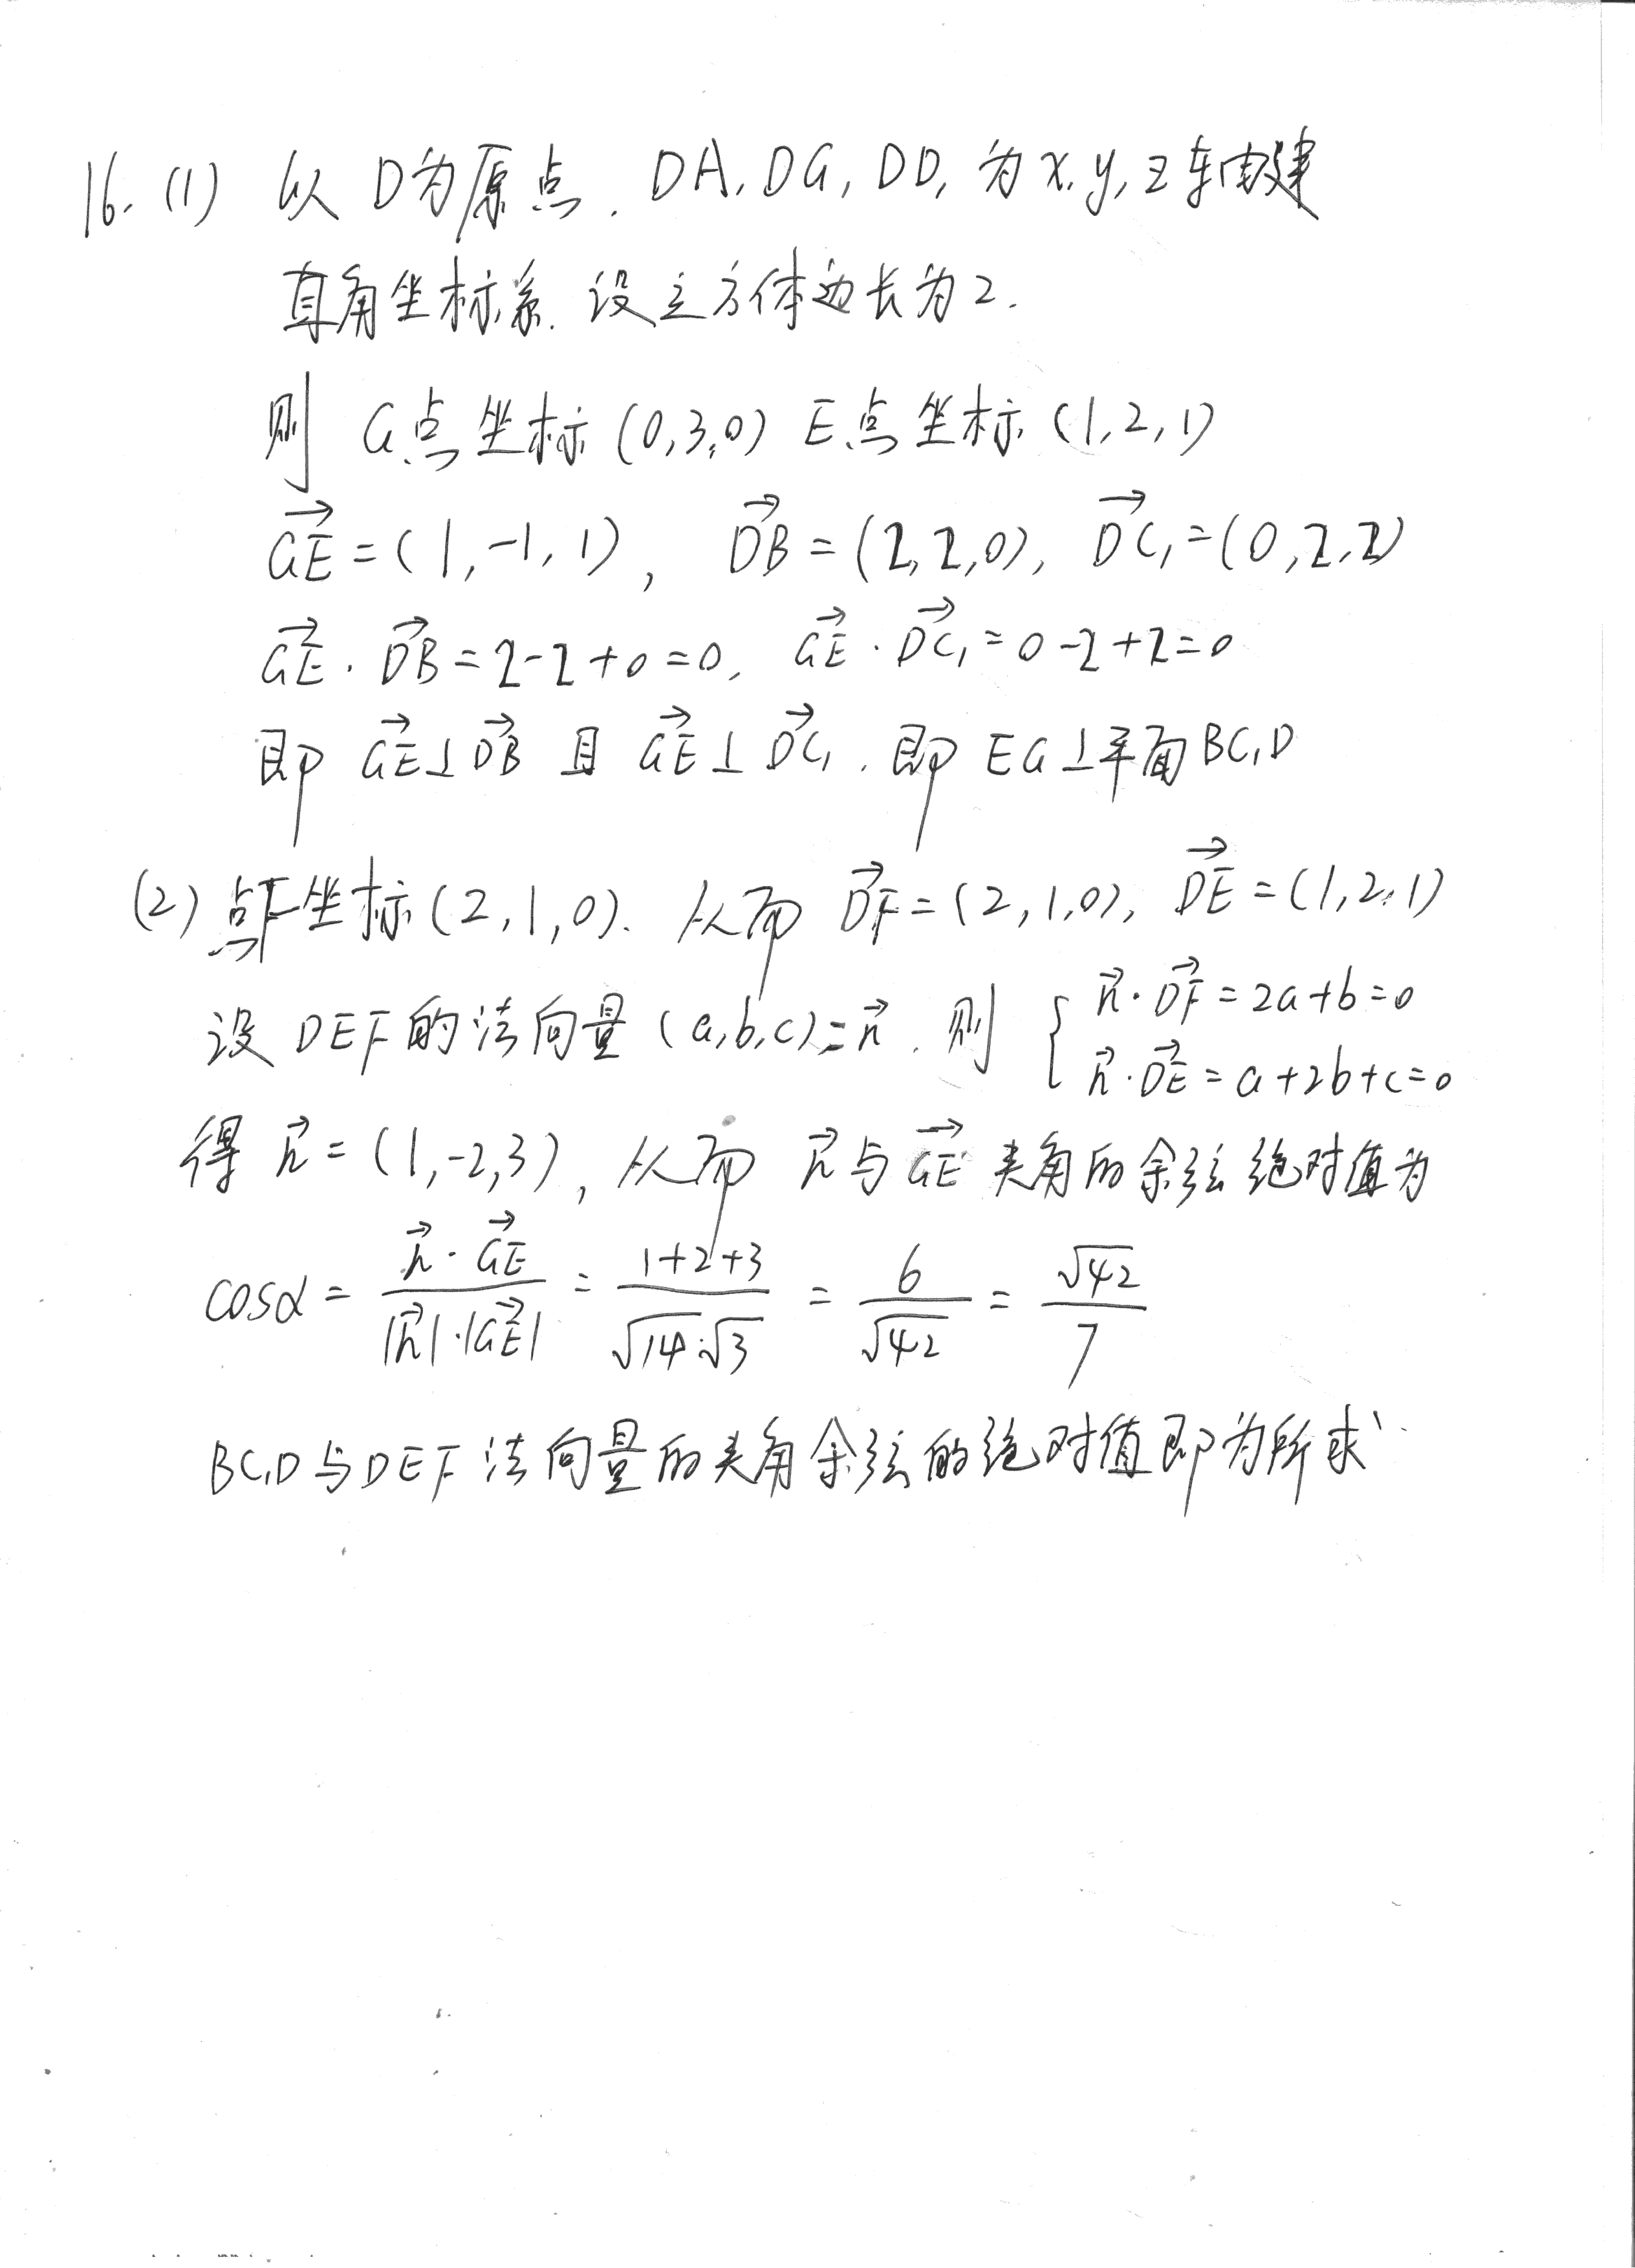 16. (1) 以D为原点. DA, DG, DD₁ 为x, y, z轴建
直角坐标系. 设立方体边长为2.
则 G点坐标(0,3,0) E点坐标(1,2,1)
$\vec{GE}=(1,-1,1)$, $\vec{DB}=(2,2,0)$, $\vec{DC_1}=(0,2,2)$
$\vec{GE}\cdot\vec{DB}=2-2+0=0$, $\vec{GE}\cdot\vec{DC_1}=0-2+2=0$
即 $\vec{GE}\perp\vec{DB}$ 且 $\vec{GE}\perp\vec{DC_1}$. 即 EG⊥平面BC₁D
(2) 点F坐标(2,1,0). 从而 $\vec{DF}=(2,1,0)$, $\vec{DE}=(1,2,1)$
设 DEF的法向量 $(a,b,c)=\vec{n}$. 则 $\begin{cases}\vec{n}\cdot\vec{DF}=2a+b=0\\\vec{n}\cdot\vec{DE}=a+2b+c=0\end{cases}$
得 $\vec{n}=(1,-2,3)$, 从而 $\vec{n}$与$\vec{GE}$夹角的余弦绝对值为
$\cos\alpha=\frac{\vec{n}\cdot\vec{GE}}{|\vec{n}|\cdot|\vec{GE}|}=\frac{1+2+3}{\sqrt{14}\cdot\sqrt{3}}=\frac{6}{\sqrt{42}}=\frac{\sqrt{42}}{7}$
BC₁D与DEF法向量的夹角余弦的绝对值即为所求.